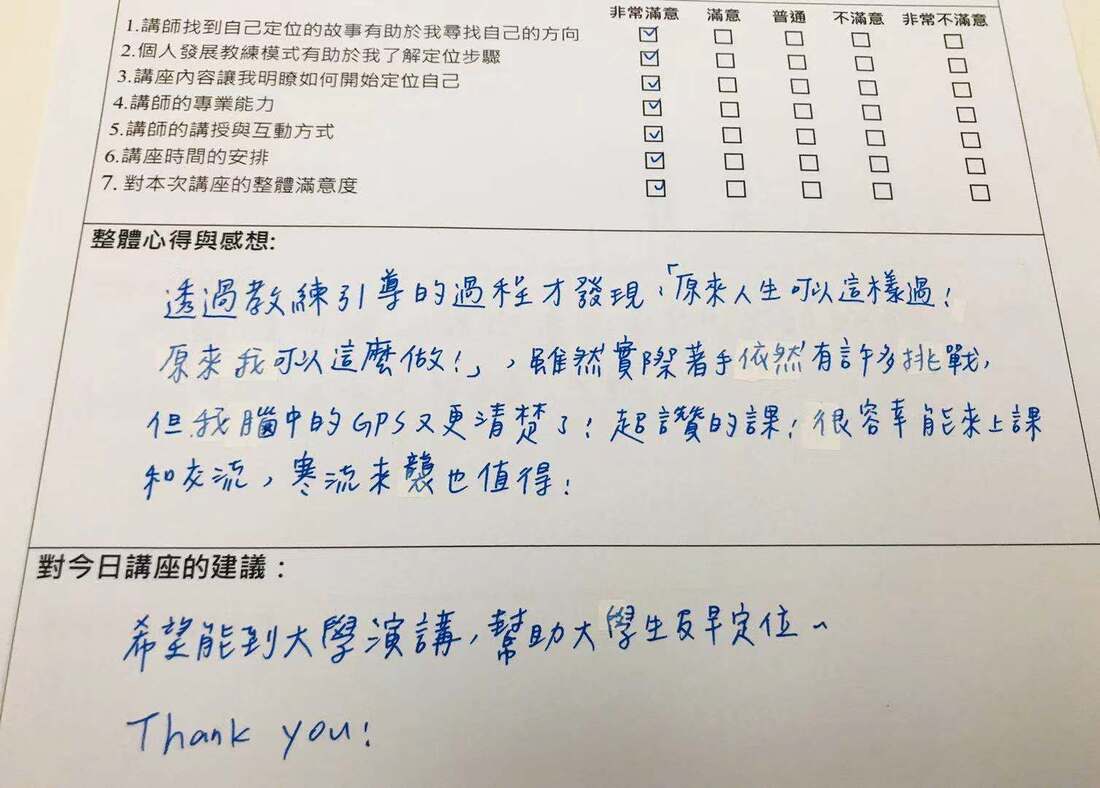 非常滿意 滿意 普通 不滿意 非常不滿意
1.講師找到自己定位的故事有助於我尋找自己的方向 ☑ ☐ ☐ ☐ ☐
2.個人發展教練模式有助於我了解定位步驟 ☑ ☐ ☐ ☐ ☐
3.講座內容讓我明瞭如何開始定位自己 ☑ ☐ ☐ ☐ ☐
4.講師的專業能力 ☑ ☐ ☐ ☐ ☐
5.講師的講授與互動方式 ☑ ☐ ☐ ☐ ☐
6.講座時間的安排 ☑ ☐ ☐ ☐ ☐
7. 對本次講座的整體滿意度 ☑ ☐ ☐ ☐ ☐
整體心得與感想:
透過教練引導的過程才發現,「原來人生可以這樣過!
原來我可以這麼做!」,雖然實際著手依然有許多挑戰,
但我腦中的GPS又更清楚了!超讚的課!很容幸能來上課
和交流,寒流來襲也值得!
對今日講座的建議:
希望能到大學演講,幫助大學生及早定位~
Thank you!